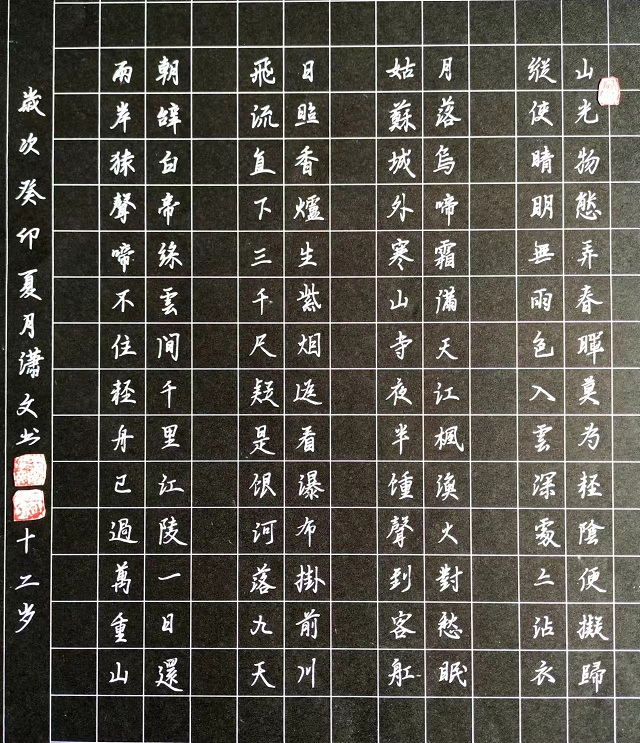 山光物態弄春暉莫為輕陰便擬歸
縱使晴明無雨色入雲深處亦沾衣
月落烏啼霜滿天江楓漁火對愁眠
姑蘇城外寒山寺夜半鍾聲到客船
日照香爐生紫烟遥看瀑布掛前川
飛流直下三千尺疑是銀河落九天
朝辭白帝綵雲间千里江陵一日還
兩岸猿聲啼不住輕舟已過萬重山
歲次癸卯夏月瀟文书十二岁